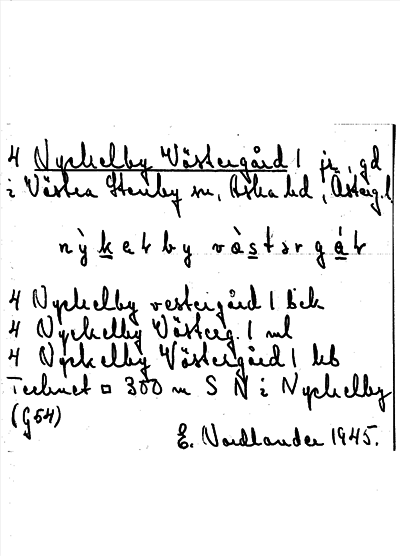 4 Nyckelby Västergård 1 je, gd
i Västra Stenby sn, Aska hd, Österg. l.
nỳkelby västərgår
4 Nyckelby vestergård 1 bek
4 Nyckelby Västerg. 1 ml
4 Nyckelby Västergård 1 hb
Tecknet □ 300 m S N i Nyckelby
(G54)
E. Nordlander 1945.